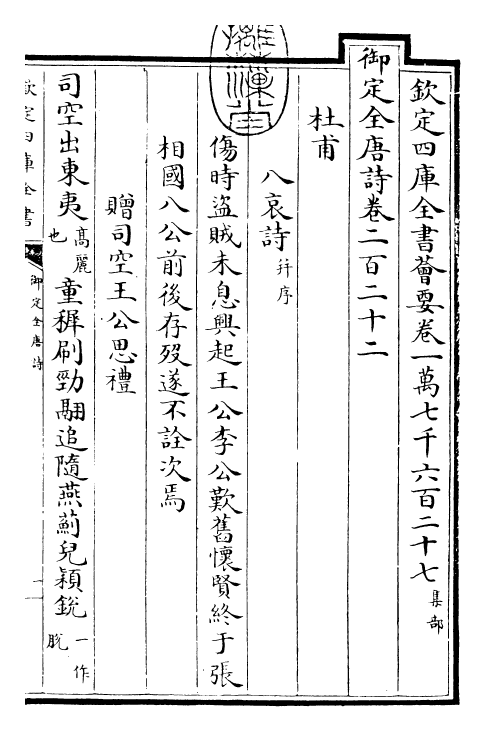 欽定四庫全書薈要卷一萬七千六百二十七集部
御定全唐詩卷二百二十二
杜甫
八哀詩并序
傷時盜賊未息興起王公李公歎舊懷賢終于張
相國八公前後存歿遂不詮次焉
贈司空王公思禮
司空出東夷高麗也童穉刷勁翮追隨燕薊兒穎銳一作脫
欽定四庫全書
御定全唐詩
一